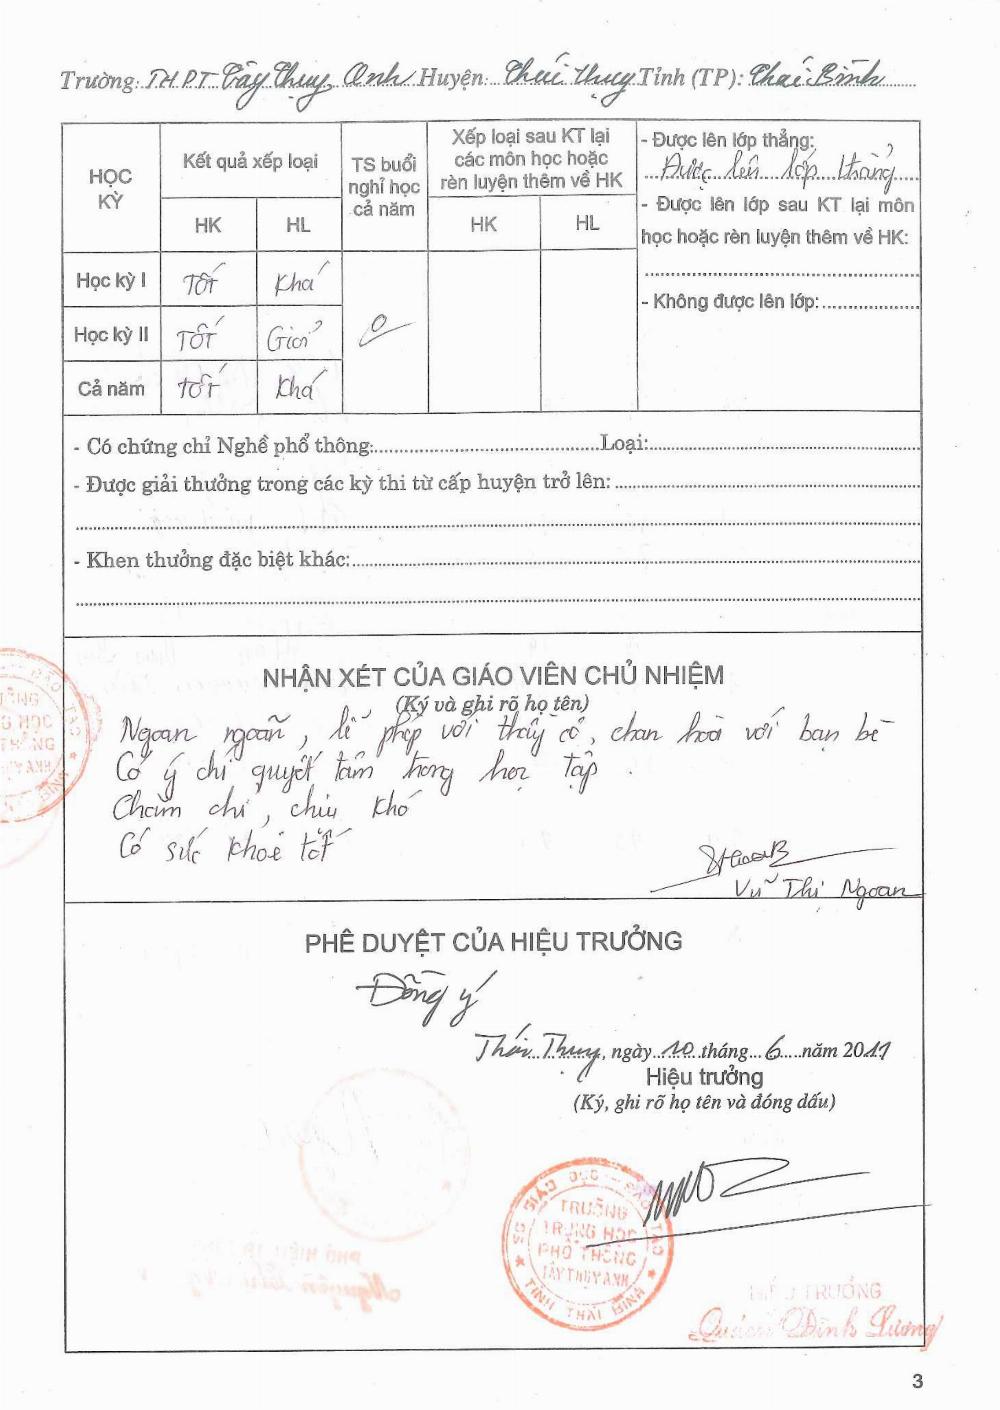 Trường: THPT Tây Thụy Anh Huyện: Thái Thụy Tỉnh (TP): Thái Bình
HỌC KỲ
Kết quả xếp loại
TS buổi nghỉ học cả năm
Xếp loại sau KT lại các môn học hoặc rèn luyện thêm về HK
HK HL HK HL
- Được lên lớp thẳng:
Được lên lớp thẳng
- Được lên lớp sau KT lại môn
học hoặc rèn luyện thêm về HK:
- Không được lên lớp:
Học kỳ I Tốt Khá
Học kỳ II Tốt Giỏi 0
Cả năm tốt Khá
- Có chứng chỉ Nghề phổ thông: Loại:
- Được giải thưởng trong các kỳ thi từ cấp huyện trở lên:
- Khen thưởng đặc biệt khác:
NHẬN XÉT CỦA GIÁO VIÊN CHỦ NHIỆM
(Ký và ghi rõ họ tên)
Ngoan ngoãn, lễ phép với thầy cô, chan hoà với bạn bè
Có ý chí quyết tâm trong học tập.
Chăm chỉ, chịu khó
Có sức khoẻ tốt
Vũ Thị Ngoan
PHÊ DUYỆT CỦA HIỆU TRƯỞNG
Đồng ý
Thái Thụy, ngày 10 tháng 6 năm 2011
Hiệu trưởng
(Ký, ghi rõ họ tên và đóng dấu)
SỞ GIÁO DỤC ĐÀO TẠO
TRƯỜNG
TRUNG HỌC
PHỔ THÔNG
TÂY THỤY ANH
TỈNH THÁI BÌNH
HIỆU TRƯỞNG
Đình Lương
3